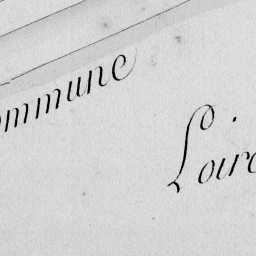 ommune
Loire